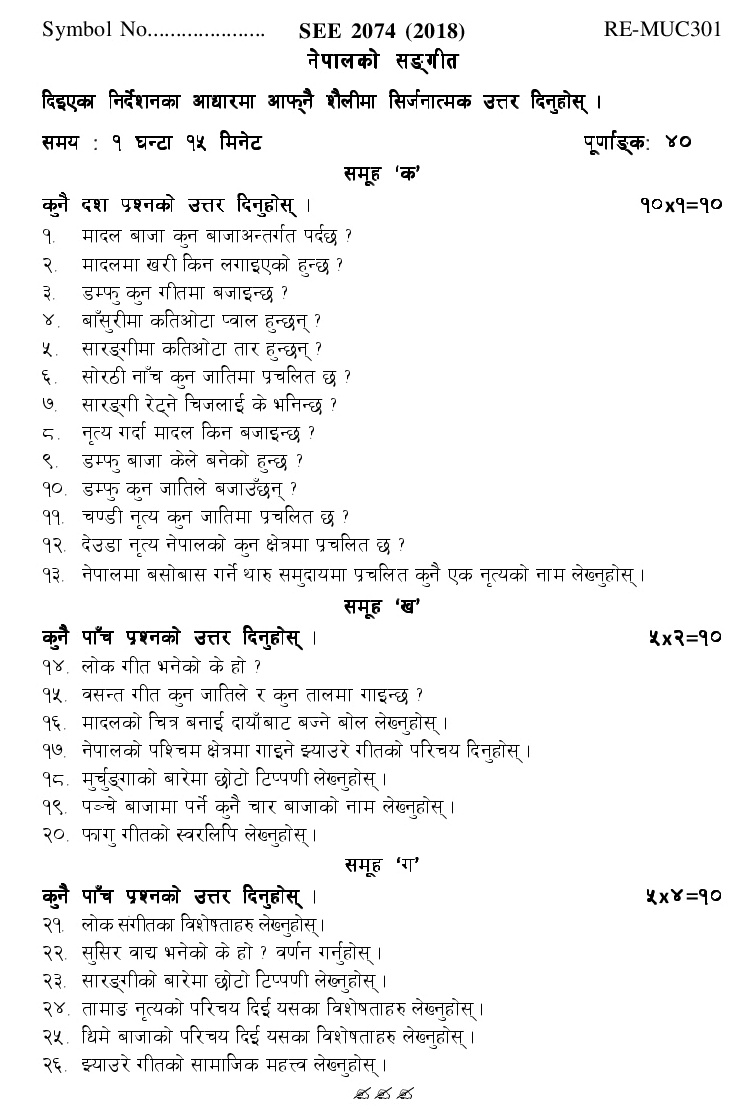 Symbol No..................... SEE 2074 (2018) RE-MUC301
नेपालको सङ्गीत
दिइएका निर्देशनका आधारमा आफ्नै शैलीमा सिर्जनात्मक उत्तर दिनुहोस् ।
समय : १ घन्टा १५ मिनेट पूर्णाङ्क: ४०
समूह ‘क’
कुनै दश प्रश्नको उत्तर दिनुहोस् । १०x१=१०
१. मादल बाजा कुन बाजाअन्तर्गत पर्दछ ?
२. मादलमा खरी किन लगाइएको हुन्छ ?
३. डम्फु कुन गीतमा बजाइन्छ ?
४. बाँसुरीमा कतिओटा प्वाल हुन्छन् ?
५. सारङ्गीमा कतिओटा तार हुन्छन् ?
६. सोरठी नाँच कुन जातिमा प्रचलित छ ?
७. सारङ्गी रेट्ने चिजलाई के भनिन्छ ?
८. नृत्य गर्दा मादल किन बजाइन्छ ?
९. डम्फु बाजा केले बनेको हुन्छ ?
१०. डम्फु कुन जातिले बजाउँछन् ?
११. चण्डी नृत्य कुन जातिमा प्रचलित छ ?
१२. देउडा नृत्य नेपालको कुन क्षेत्रमा प्रचलित छ ?
१३. नेपालमा बसोबास गर्ने थारु समुदायमा प्रचलित कुनै एक नृत्यको नाम लेख्नुहोस् ।
समूह ‘ख’
कुनै पाँच प्रश्नको उत्तर दिनुहोस् । ५x२=१०
१४. लोक गीत भनेको के हो ?
१५. वसन्त गीत कुन जातिले र कुन तालमा गाइन्छ ?
१६. मादलको चित्र बनाई दायाँबाट बज्ने बोल लेख्नुहोस् ।
१७. नेपालको पश्चिम क्षेत्रमा गाइने झ्याउरे गीतको परिचय दिनुहोस् ।
१८. मुर्चुङ्गाको बारेमा छोटो टिप्पणी लेख्नुहोस् ।
१९. पञ्चे बाजामा पर्ने कुनै चार बाजाको नाम लेख्नुहोस् ।
२०. फागु गीतको स्वरलिपि लेख्नुहोस् ।
समूह ‘ग’
कुनै पाँच प्रश्नको उत्तर दिनुहोस् । ५x४=१०
२१. लोक संगीतका विशेषताहरु लेख्नुहोस् ।
२२. सुसिर वाद्य भनेको के हो ? वर्णन गर्नुहोस् ।
२३. सारङ्गीको बारेमा छोटो टिप्पणी लेख्नुहोस् ।
२४. तामाङ नृत्यको परिचय दिई यसका विशेषताहरु लेख्नुहोस् ।
२५. धिमे बाजाको परिचय दिई यसका विशेषताहरु लेख्नुहोस् ।
२६. झ्याउरे गीतको सामाजिक महत्त्व लेख्नुहोस् ।